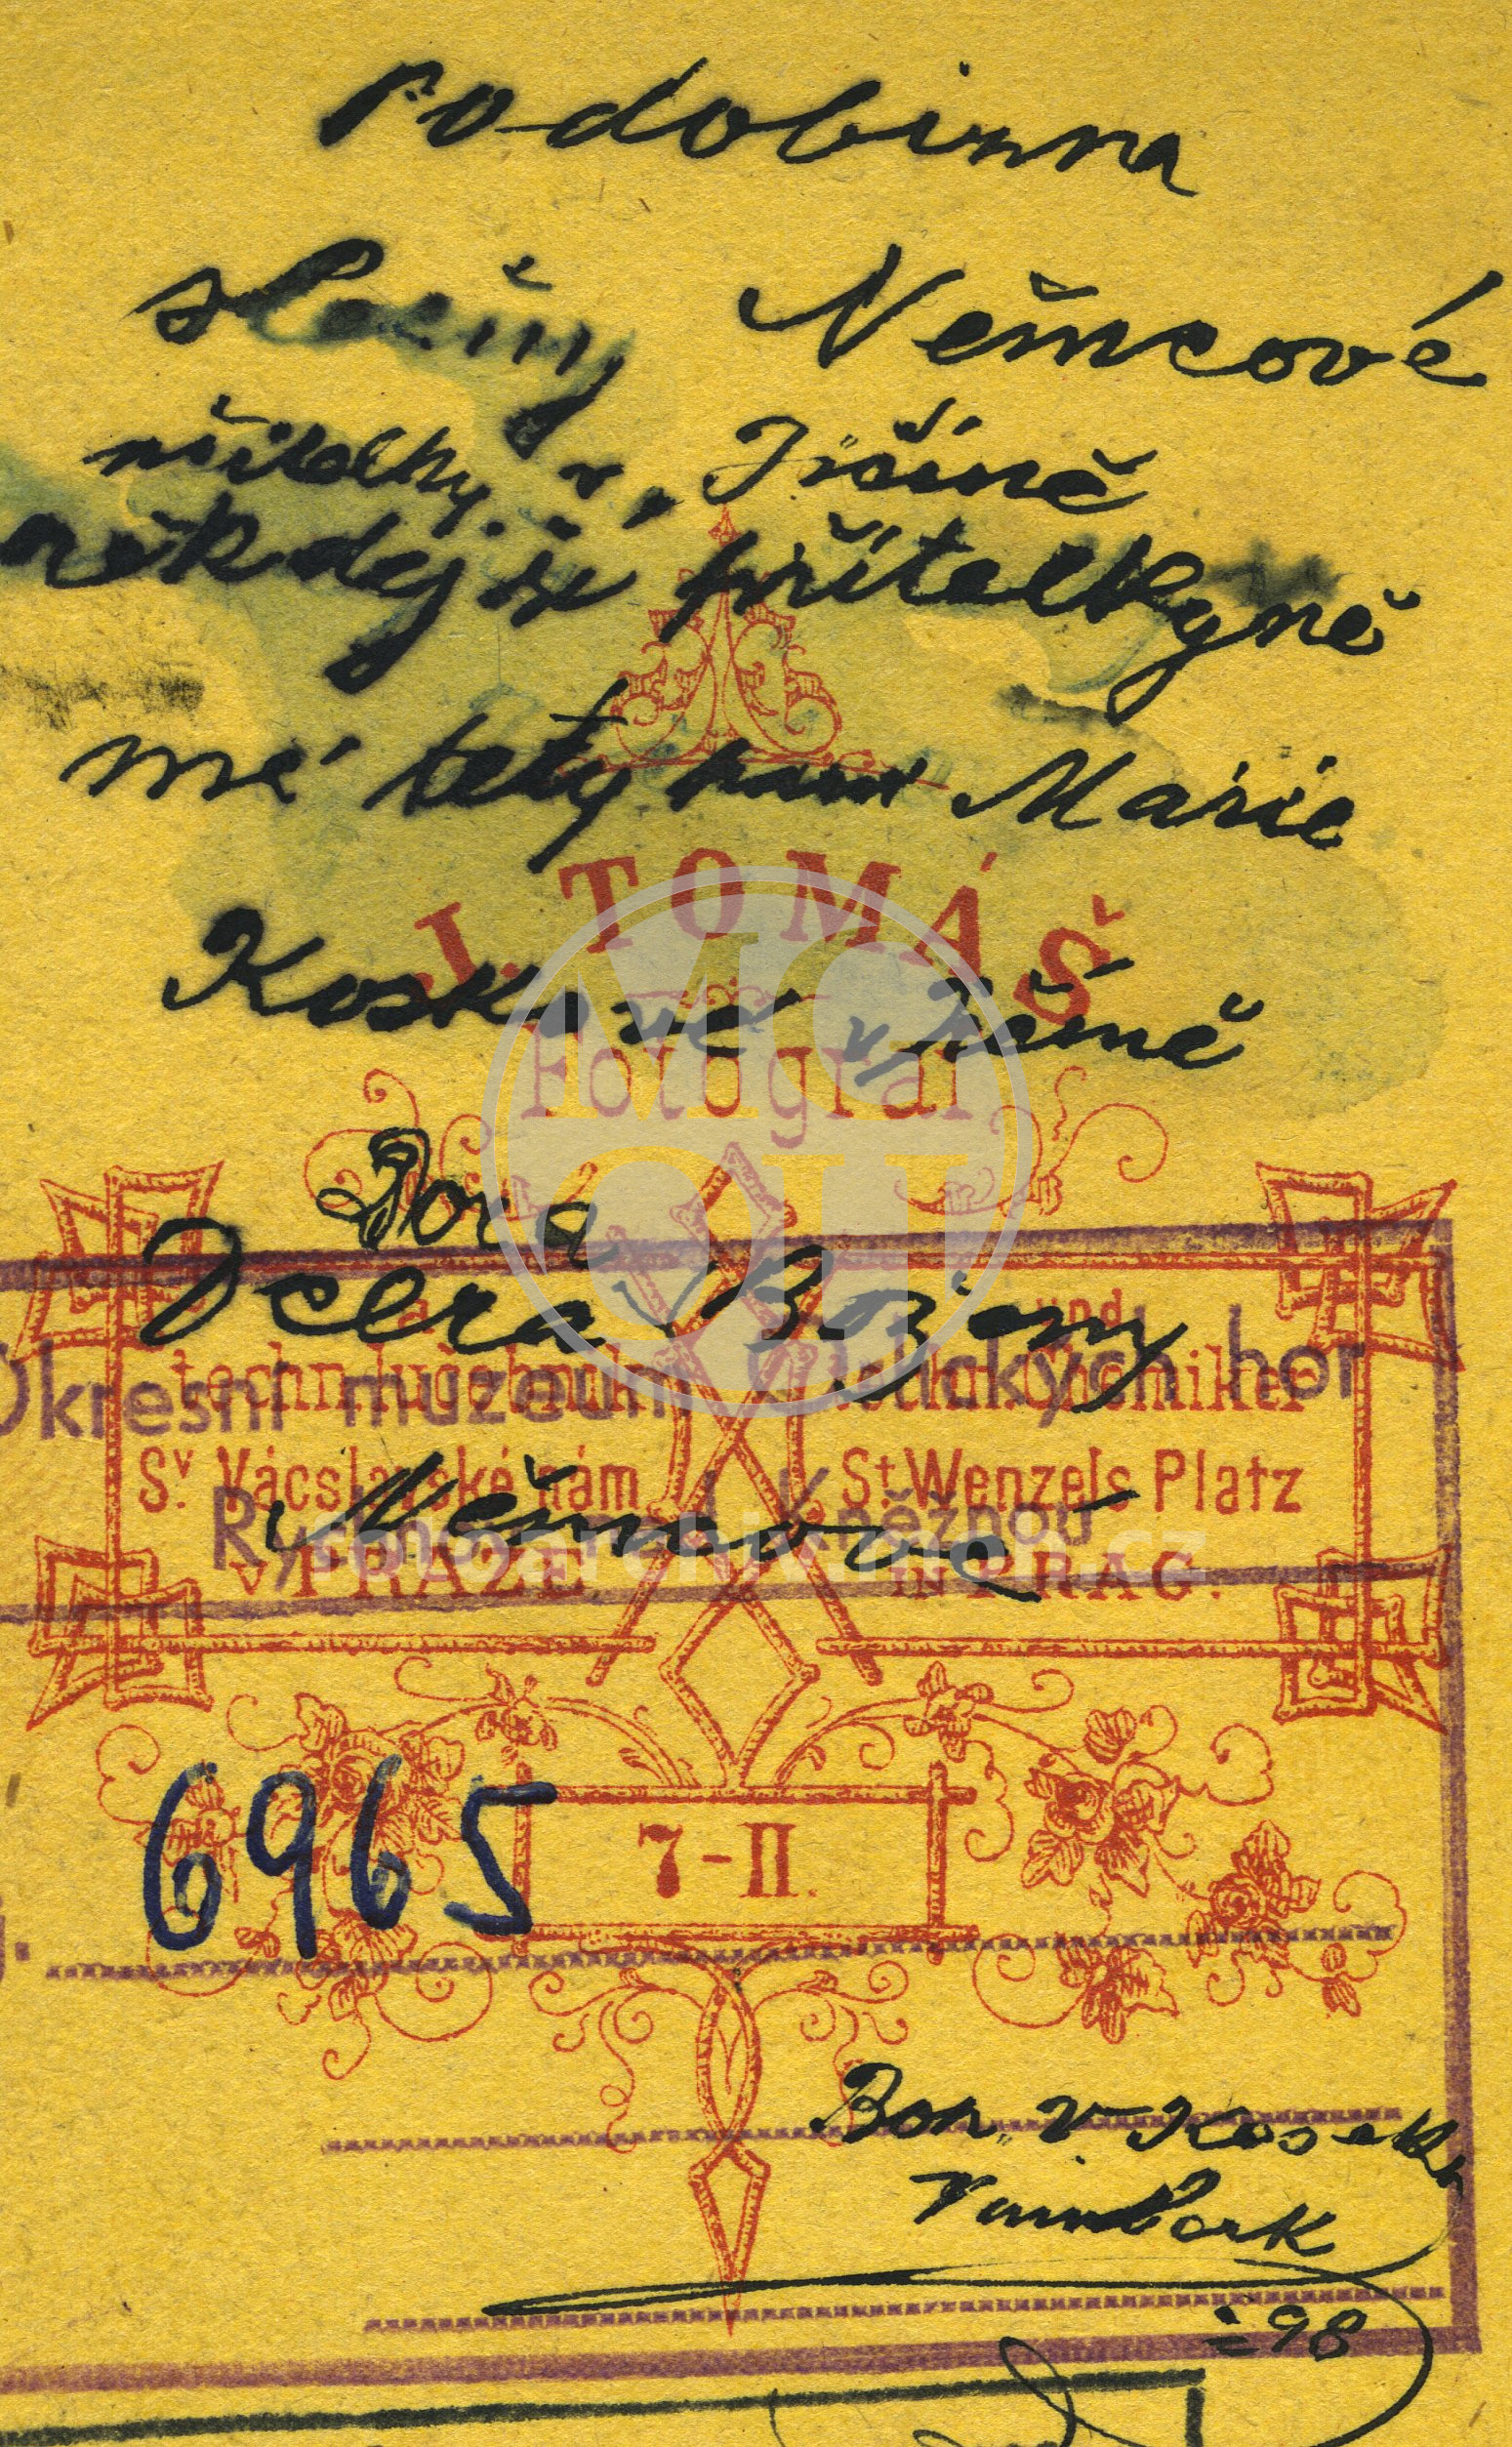 Podobizna
slečny Němcové
učitelky v Jičíně
někdejší přítelkyně
mé tety paní Marie
v Jičíně
J. TOMÁŠ
Fotograf
Dora
Dcera Boženy
Němcové
a
techn. lučebník
und
techn. Chemiker
Okresní muzeum Orlických hor
Sv. Václavské nám
St. Wenzels Platz
Rychnov nad Kněžnou
v PRAZE
IN PRAG.
fotoarchiv.mch.cz
MGOH
6965
7-II.
Bon. v.
Vamberk
=98